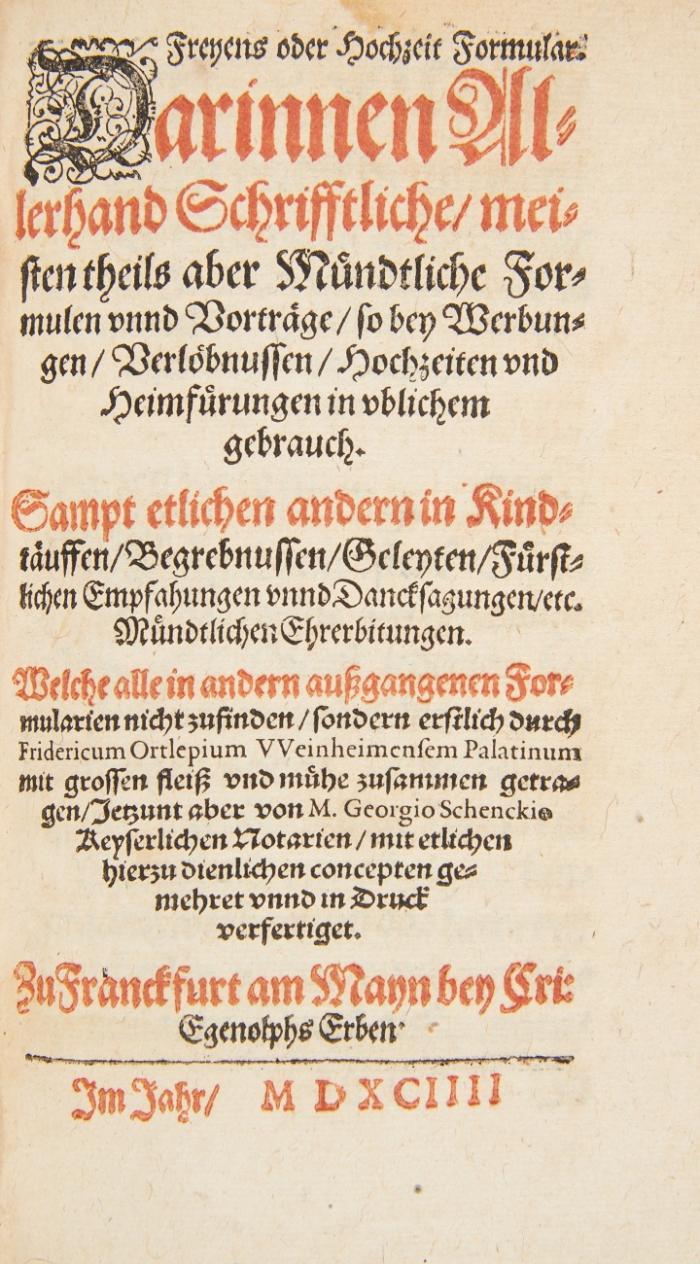 Freyens oder Hochzeit Formular.
Darinnen Al⸗
lerhand Schrifftliche/ mei⸗
sten theils aber Mündtliche For⸗
mulen vnnd Vorträge/ so bey Werbun⸗
gen/ Verlöbnussen/ Hochzeiten vnd
Heimfürungen in vblichem
gebrauch.
Sampt etlichen andern in Kind⸗
täuffen/ Begrebnussen/ Geleyten/ Fürst⸗
lichen Empfahungen vnnd Dancksagungen/ etc.
Mündtlichen Ehrerbitungen.
Welche alle in andern außgangenen For⸗
mularien nicht zufinden/ sondern erstlich durch
Fridericum Ortlepium VVeinheimensem Palatinum
mit grossen fleiß vnd mühe zusammen getra⸗
gen/ Jetzunt aber von M. Georgio Schenckio
Keyserlichen Notarien/ mit etlichen
hierzu dienlichen concepten ge⸗
mehret vnnd in Druck
verfertiget.
Zu Franckfurt am Mayn bey Chri:
Egenolphs Erben
Im Jahr/ M D XCIIII